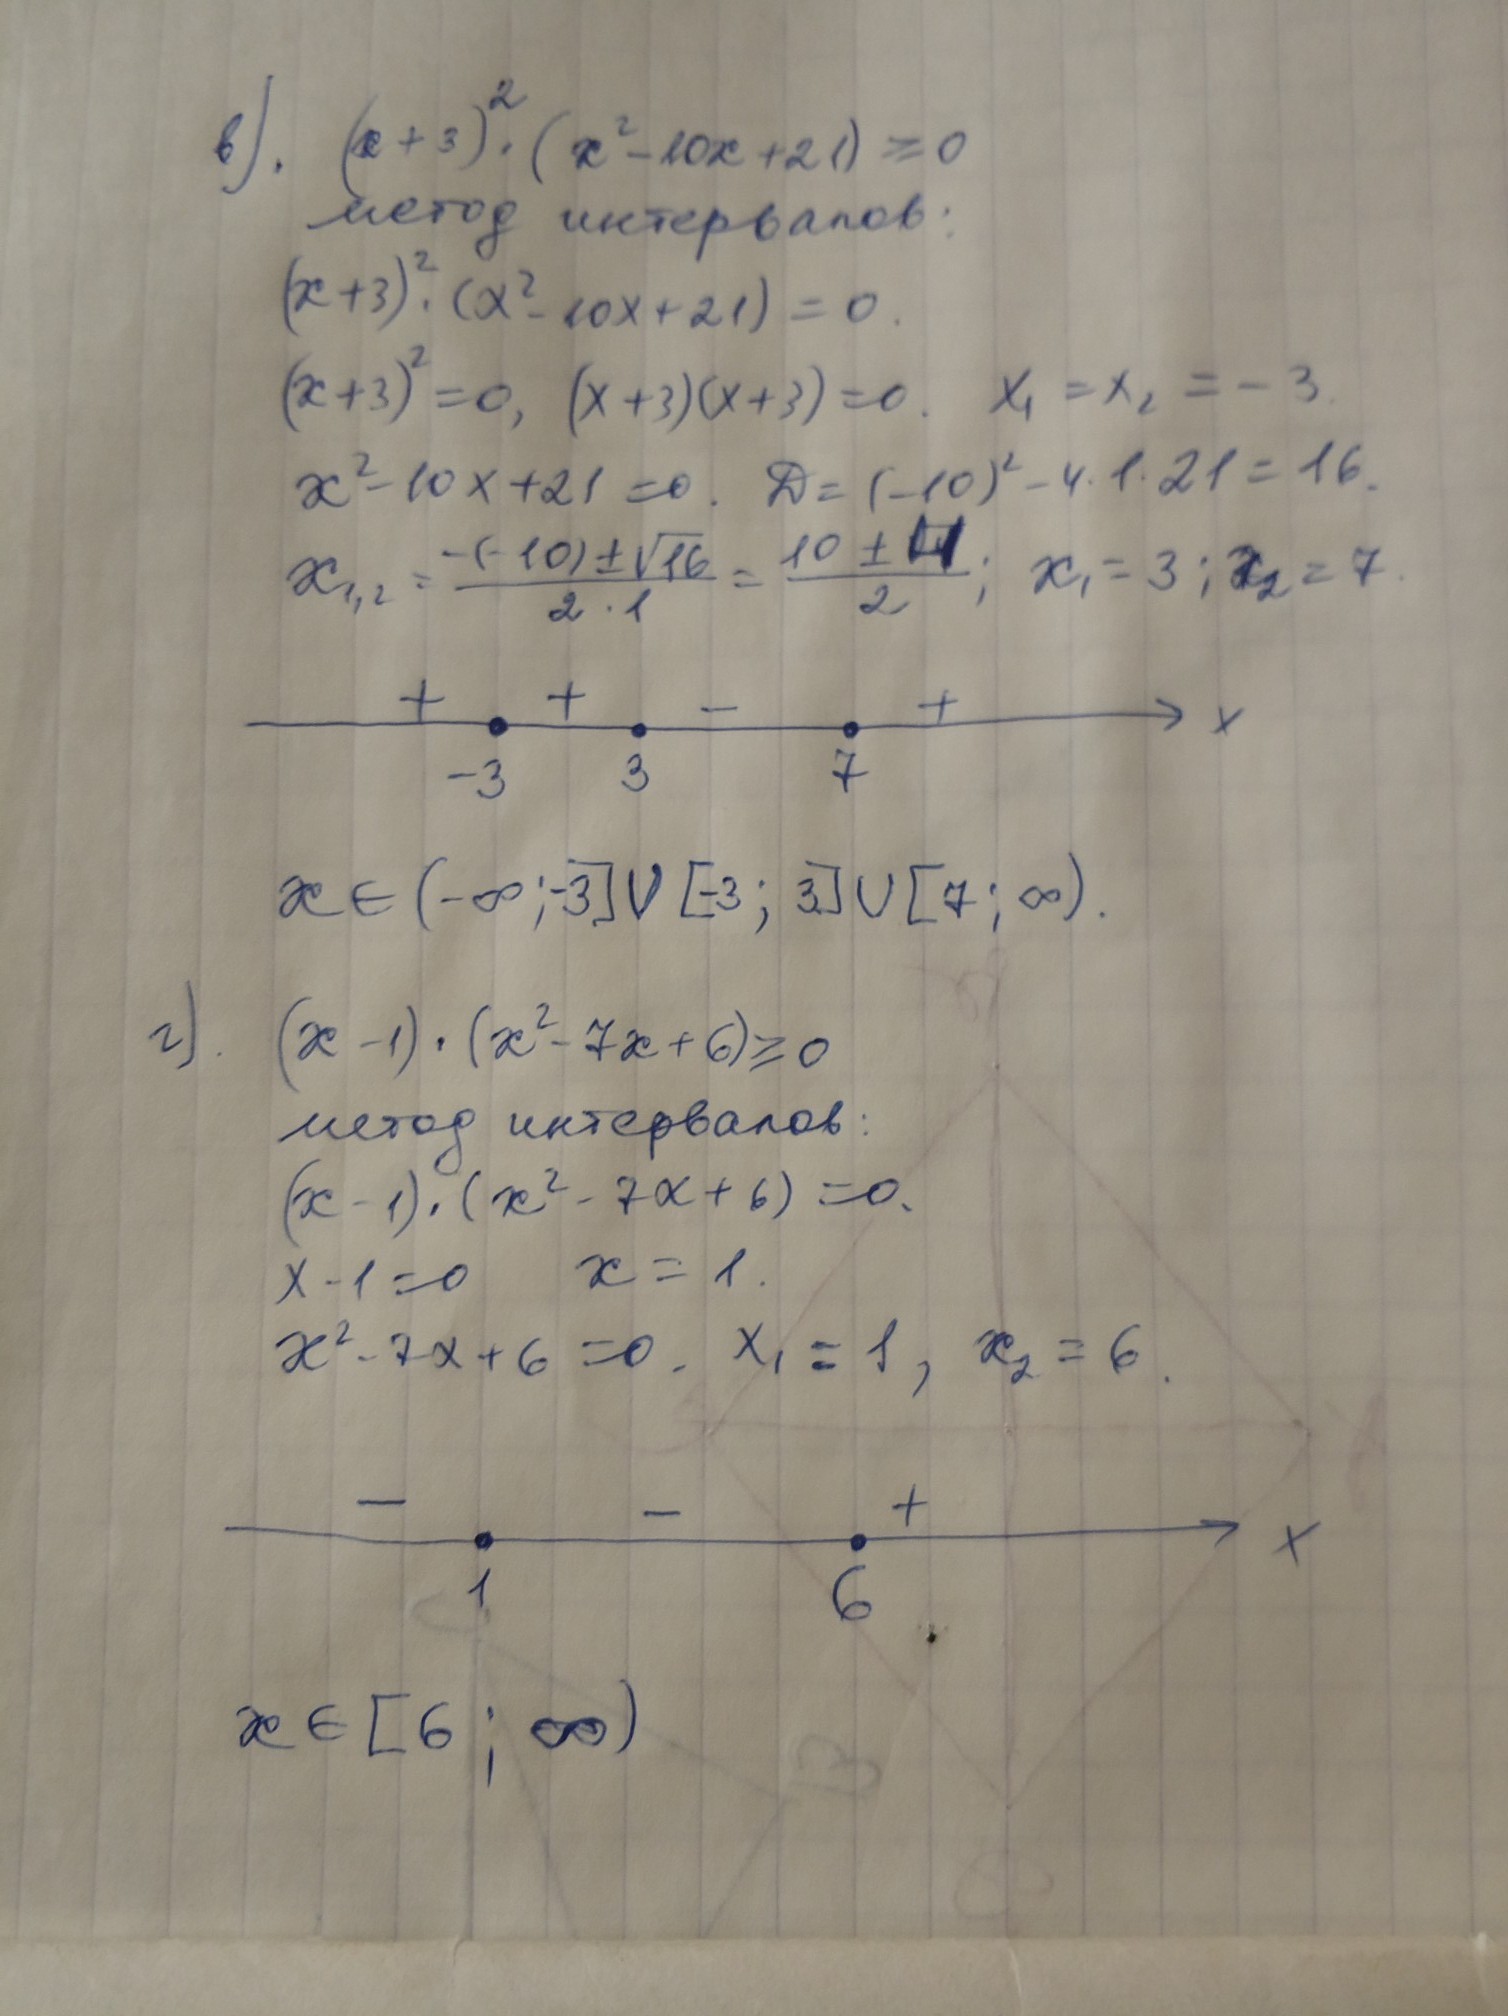 в). (x+3)²·(x²-10x+21) ≥ 0
метод интервалов:
(x+3)²·(x²-10x+21) = 0.
(x+3)²=0, (x+3)(x+3)=0. x₁ = x₂ = -3.
x²-10x+21=0. D=(-10)²-4·1·21=16.
x₁,₂ = (-(-10)±√16)/(2·1) = (10±4)/2; x₁=3; x₂=7.
+ + - + x
-3 3 7
x∈(-∞;-3]∪[-3;3]∪[7;∞).
г). (x-1)·(x²-7x+6)≥0
метод интервалов:
(x-1)·(x²-7x+6)=0.
x-1=0 x=1.
x²-7x+6=0. x₁=1, x₂=6.
- - + x
1 6
x∈[6;∞)